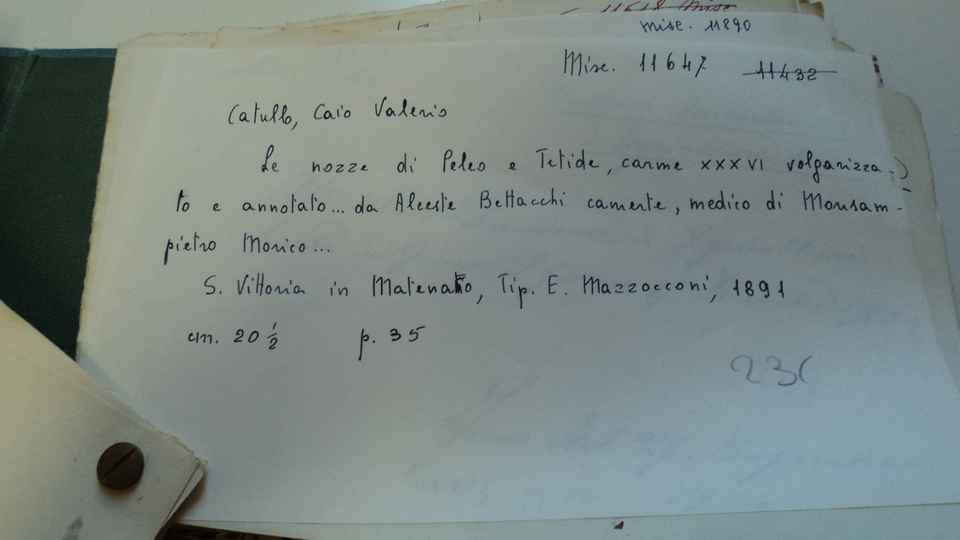 11618 Misc
misc. 11890
Misc. 11647 11432
Catullo, Caio Valerio
Le nozze di Peleo e Tetide, carme XXXVI volgarizza-
to e annotato... da Alceste Bettacchi camerte, medico di Monsam-
pietro Morico...
S. Vittoria in Matenano, Tip. E. Mazzocconi, 1891
cm. 20 1/2 p. 35